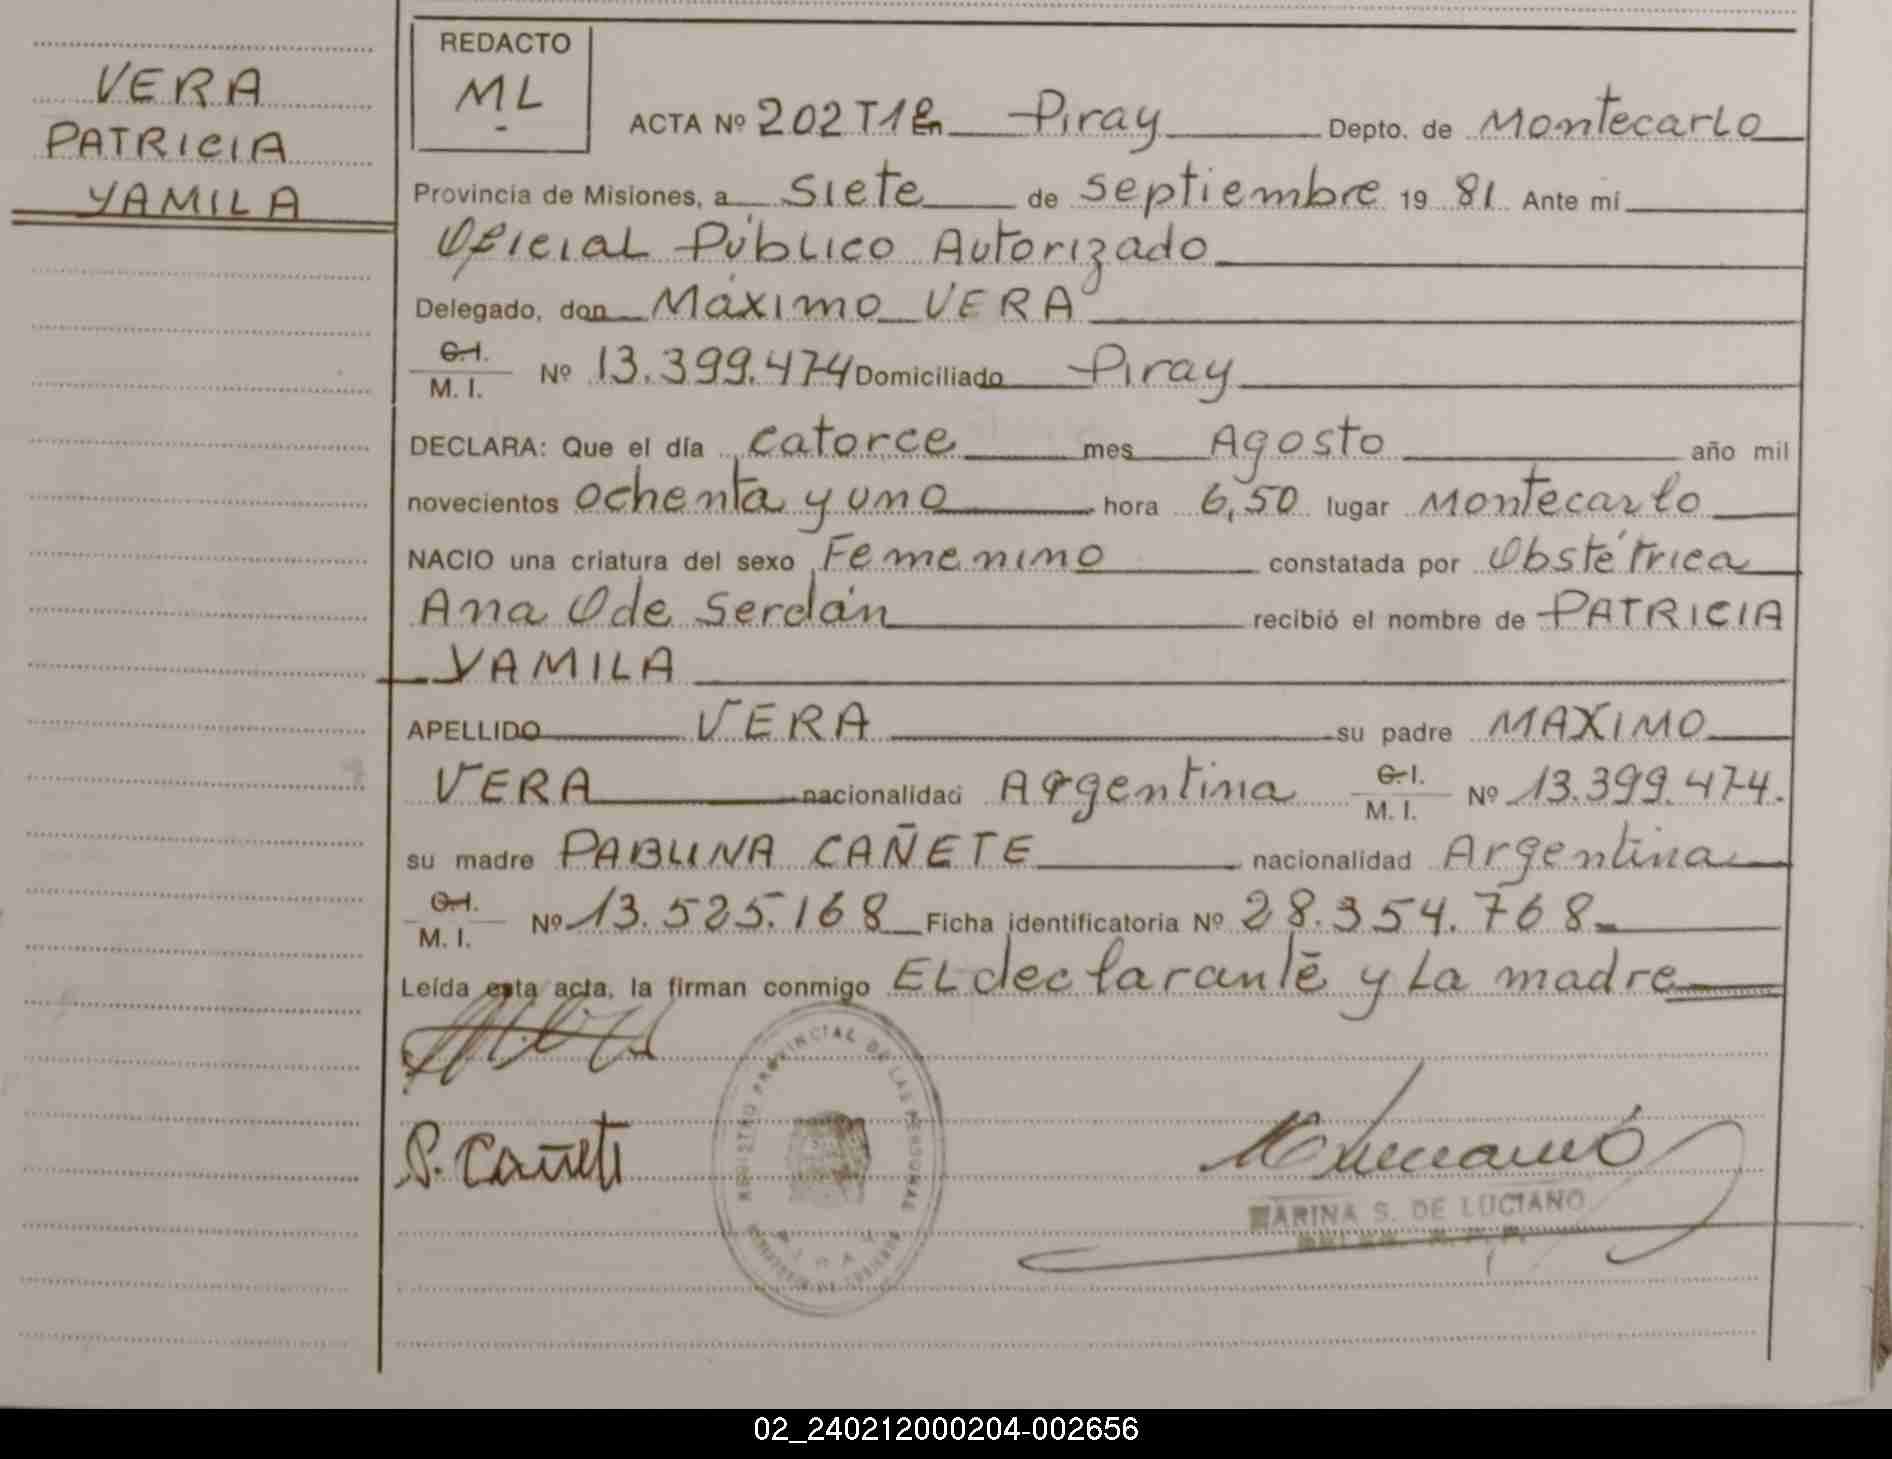 VERA
PATRICIA
YAMILA
REDACTO
ML
ACTA Nº 202 T1º En Piray Depto. de Montecarlo
Provincia de Misiones, a Siete de Septiembre 19 81 Ante mí
Oficial Público Autorizado
Delegado, don Máximo VERA
C.I. M. I. Nº 13.399.474 Domiciliado Piray
DECLARA: Que el día catorce mes Agosto año mil
novecientos ochenta y uno hora 6,50 lugar Montecarlo
NACIO una criatura del sexo Femenino constatada por Obstétrica
Ana Ode Serdán recibió el nombre de PATRICIA
YAMILA
APELLIDO VERA su padre MAXIMO
VERA nacionalidad Argentina C.I. M. I. Nº 13.399.474.
su madre PABLINA CAÑETE nacionalidad Argentina
C.I. M. I. Nº 13.525.168 Ficha identificatoria Nº 28.354.768
Leída esta acta, la firman conmigo El declarante y La madre
P. Cañete
REGISTRO PROVINCIAL DE LAS PERSONAS
MARINA S. DE LUCIANO
02_240212000204-002656